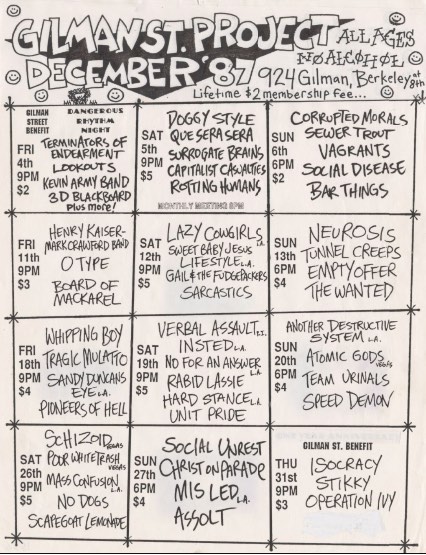 GILMAN ST. PROJECT ALL AGES
NO ALCOHOL
DECEMBER '87 924 Gilman, Berkeley at 8th
Lifetime $2 membership fee...
GILMAN STREET BENEFIT
DANGEROUS RHYTHM NIGHT
FRI 4th 9PM $2
TERMINATORS OF ENDEARMENT
LOOKOUTS
KEVIN ARMY BAND
3D BLACKBOARD
plus more!
SAT 5th 9PM $5
DOGGY STYLE
QUE SERA SERA
SURROGATE BRAINS
CAPITALIST CASUALTIES
ROTTING HUMANS
MONTHLY MEETING 5PM
SUN 6th 6PM $2
CORRUPTED MORALS
SEWER TROUT
VAGRANTS
SOCIAL DISEASE
BAR THINGS
FRI 11th 9PM $3
HENRY KAISER-
MARK CRAWFORD BAND
O TYPE
BOARD OF
MACKAREL
SAT 12th 9PM $5
LAZY COWGIRLS L.A.
SWEET BABY JESUS
LIFESTYLE L.A.
GAIL & THE FUDGEPACKERS
SARCASTICS
SUN 13th 6PM $4
NEUROSIS
TUNNEL CREEPS
EMPTY OFFER
THE WANTED
FRI 18th 9PM $4
WHIPPING BOY
TRAGIC MULATTO
SANDY DUNCANS
EYE L.A.
PIONEERS OF HELL
SAT 19th 9PM $5
VERBAL ASSAULT R.I.
INSTED L.A.
NO FOR AN ANSWER
RABID LASSIE L.A.
HARD STANCE L.A.
UNIT PRIDE
SUN 20th 6PM $4
ANOTHER DESTRUCTIVE
SYSTEM L.A.
ATOMIC GODS VEGAS
TEAM URINALS
SPEED DEMON
SAT 26th 9PM $5
SCHIZOID VEGAS
POOR WHITE TRASH VEGAS
MASS CONFUSION L.A.
NO DOGS
SCAPEGOAT LEMONADE
SUN 27th 6PM $4
SOCIAL UNREST
CHRIST ON PARADE
MISLED L.A.
ASSOLT
GILMAN ST. BENEFIT
THU 31st 9PM $3
ISOCRACY
STIKKY
OPERATION IVY